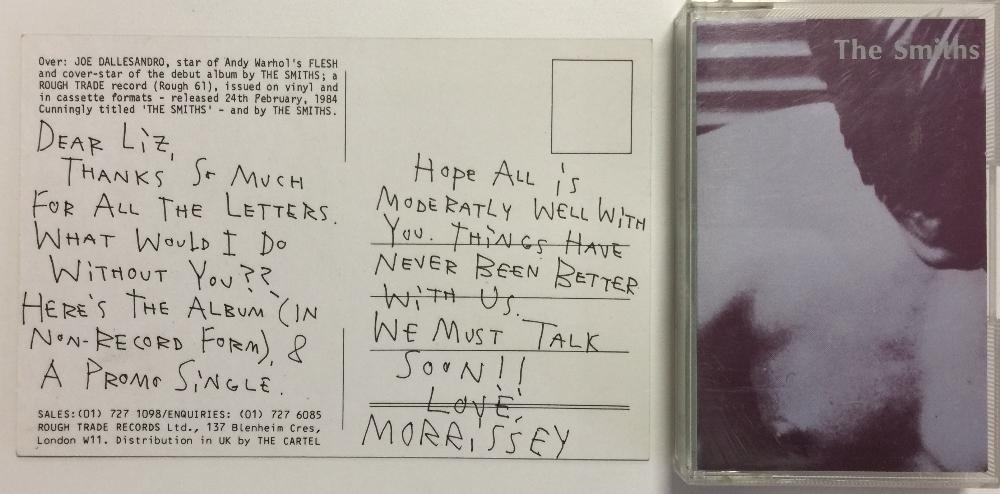 Over: JOE DALLESANDRO, star of Andy Warhol's FLESH
and cover-star of the debut album by THE SMITHS; a
ROUGH TRADE record (Rough 61), issued on vinyl and
in cassette formats - released 24th February, 1984
Cunningly titled 'THE SMITHS' - and by THE SMITHS.
DEAR LIZ,
THANKS SO MUCH
FOR ALL THE LETTERS.
WHAT WOULD I DO
WITHOUT YOU??
HERE'S THE ALBUM (IN
NON-RECORD FORM), &
A PROMO SINGLE.
SALES:(01) 727 1098/ENQUIRIES: (01) 727 6085
ROUGH TRADE RECORDS Ltd., 137 Blenheim Cres,
London W11. Distribution in UK by THE CARTEL
HOPE ALL IS
MODERATLY WELL WITH
YOU. THINGS HAVE
NEVER BEEN BETTER
WITH US.
WE MUST TALK
SOON!!
LOVE,
MORRISSEY
The Smiths